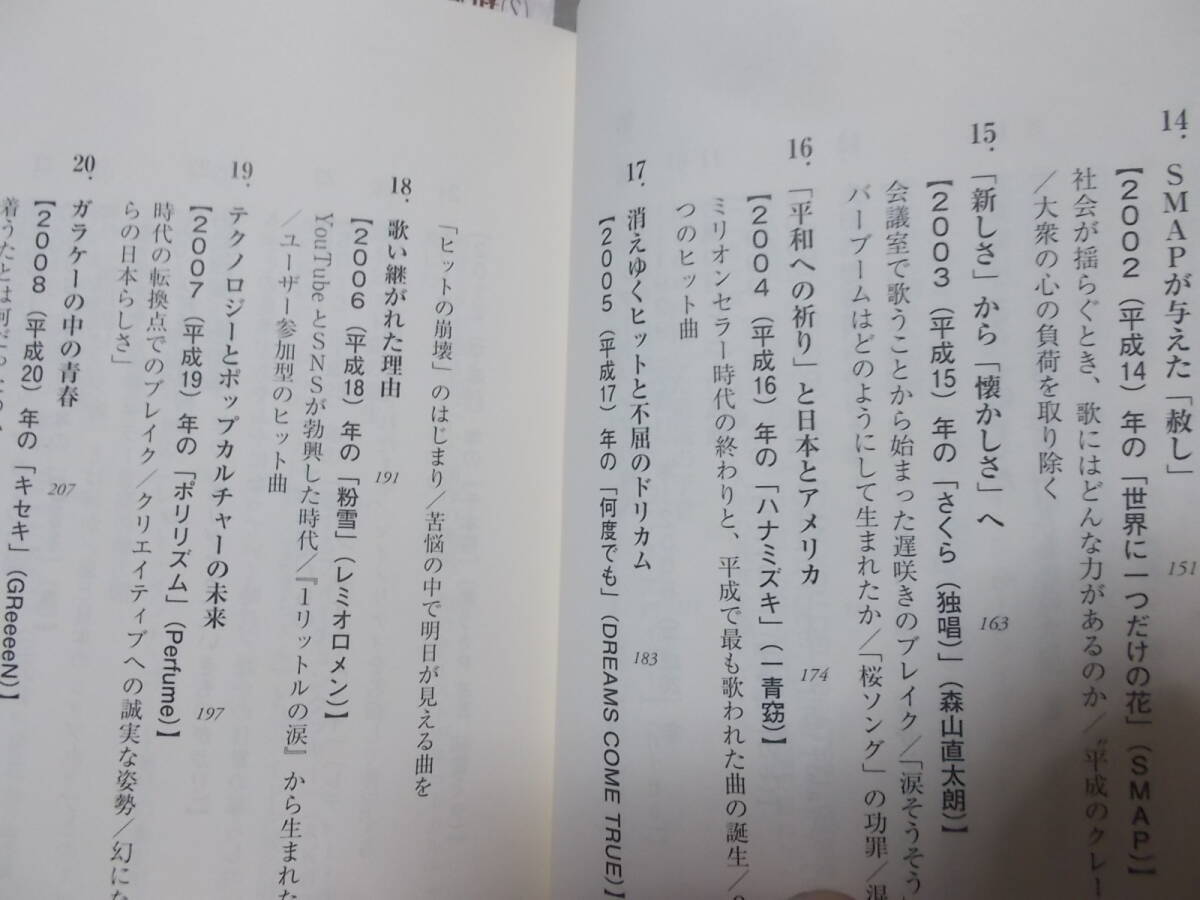 14. SMAPが与えた「赦し」 151
【2002（平成14）年の「世界に一つだけの花」（SMAP）】
社会が揺らぐとき、歌にはどんな力があるのか/〝平成のクレー
/大衆の心の負荷を取り除く
15. 「新しさ」から「懐かしさ」へ 163
【2003（平成15）年の「さくら（独唱）」（森山直太朗）】
会議室で歌うことから始まった遅咲きのブレイク/「涙そうそう」
バーブームはどのようにして生まれたか/「桜ソング」の功罪/混
16. 「平和への祈り」と日本とアメリカ 174
【2004（平成16）年の「ハナミズキ」（一青窈）】
ミリオンセラー時代の終わりと、平成で最も歌われた曲の誕生/
つのヒット曲
17. 消えゆくヒットと不屈のドリカム 183
【2005（平成17）年の「何度でも」（DREAMS COME TRUE）】
「ヒットの崩壊」のはじまり/苦悩の中で明日が見える曲を
18. 歌い継がれた理由 191
【2006（平成18）年の「粉雪」（レミオロメン）】
YouTubeとSNSが勃興した時代/『1リットルの涙』から生まれた
/ユーザー参加型のヒット曲
19. テクノロジーとポップカルチャーの未来 197
【2007（平成19）年の「ポリリズム」（Perfume）】
時代の転換点でのブレイク/クリエイティブへの誠実な姿勢/幻にな
らの日本らしさ」
20. ガラケーの中の青春 207
【2008（平成20）年の「キセキ」（GReeeeN）】
着うたとは何だったの